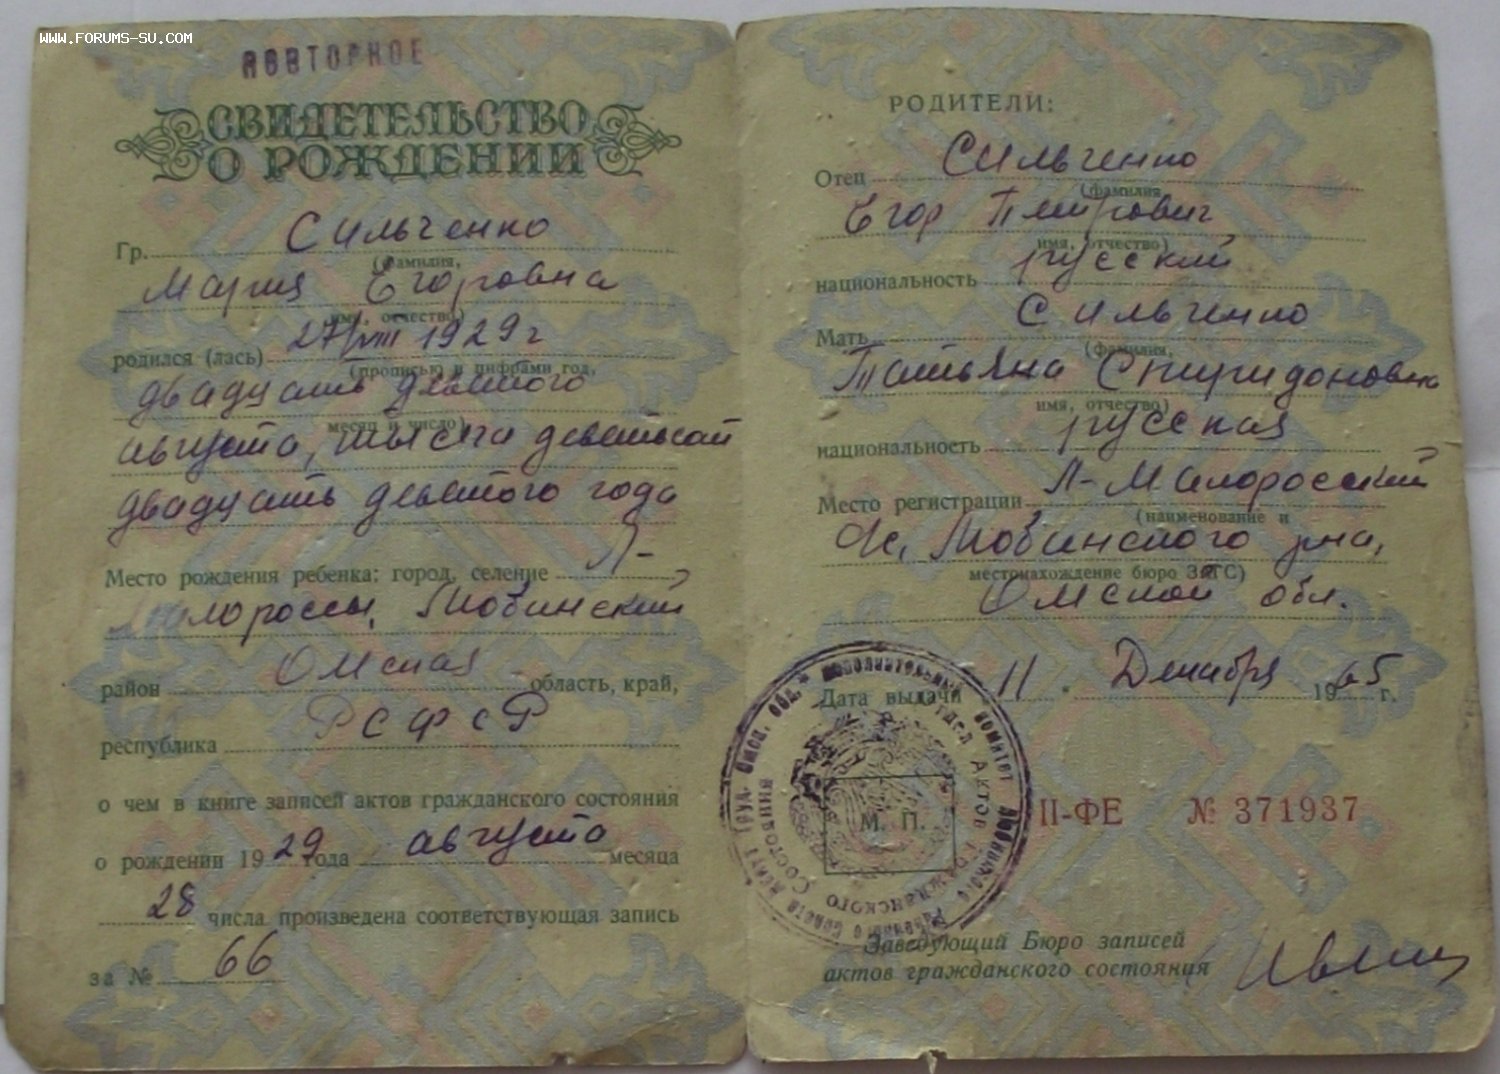 WWW.FORUMS-SU.COM
ПОВТОРНОЕ
СВИДЕТЕЛЬСТВО
О РОЖДЕНИИ
Гр. Сильченко
(фамилия,
Мария Егоровна
имя, отчество)
родился (лась) 27/VIII 1929 г
(прописью и цифрами год,
двадцать
месяц и число)
августа, тысяча девятьсот
двадцать девятого года
Место рождения ребенка: город, селение Л-
Малороссы, Тюбинский
район Омская область, край,
республика РСФСР
о чем в книге записей актов гражданского состояния
о рождении 1929 года августа месяца
28 числа произведена соответствующая запись
за № 66
РОДИТЕЛИ:
Отец Сильченко
(фамилия,
Егор Петрович
имя, отчество)
национальность русский
Мать Сильченко
(фамилия,
Татьяна Спиридоновна
имя, отчество)
национальность русская
Место регистрации Л-Малоросский
(наименование и
с, Тюбинского рна,
местонахождение бюро ЗАГС)
Омской обл.
Дата выдачи 11 " Декабря 1965 г.
М. П.
II-ФЕ № 371937
Заведующий Бюро записей
актов гражданского состояния